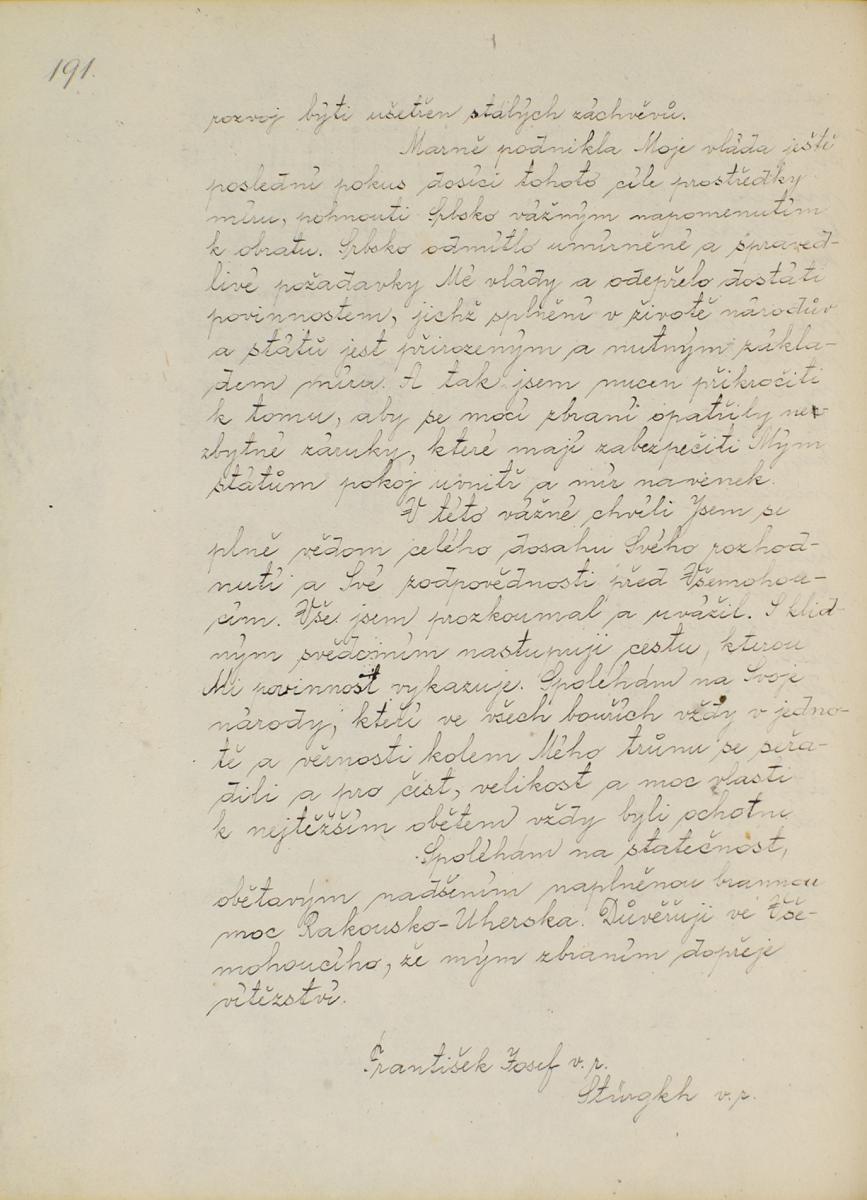 191.
rozvoj býti ušetřen stálých záchvěvů.
Marně podnikla Moje vláda ještě
poslední pokus dosíci tohoto cíle prostředky
míru, pohnouti Srbsko vážným napomenutím
k obratu. Srbsko odmítlo umírněné a spraved-
livé požadavky Mé vlády a odepřelo dostáti
povinnostem, jichž splnění v životě národův
a států jest přirozeným a nutným zákla-
dem míru. A tak jsem nucen přikročiti
k tomu, aby se mocí zbraní opatřily ne-
zbytné záruky, které mají zabezpečiti Mým
státům pokoj uvnitř a mír navenek.
V této vážné chvíli Jsem si
plně vědom celého dosahu Svého rozhod-
nutí a Své zodpovědnosti před Všemohou-
cím. Vše jsem prozkoumal a uvážil. S klid-
ným svědomím nastupuji cestu, kterou
Mi povinnost vykazuje. Spoléhám na Svoje
národy, kteří ve všech bouřích vždy v jedno-
tě a věrnosti kolem Mého trůnu se seřa-
dili a pro čest, velikost a moc vlasti
k nejtěžším obětem vždy byli ochotni.
Spoléhám na statečnost,
obětavým nadšením naplněnou brannou
moc Rakousko-Uherska. Důvěřuji ve Vše-
mohoucího, že mým zbraním dopřeje
vítězství.
František Josef v. r.
Stürgkh v. r.